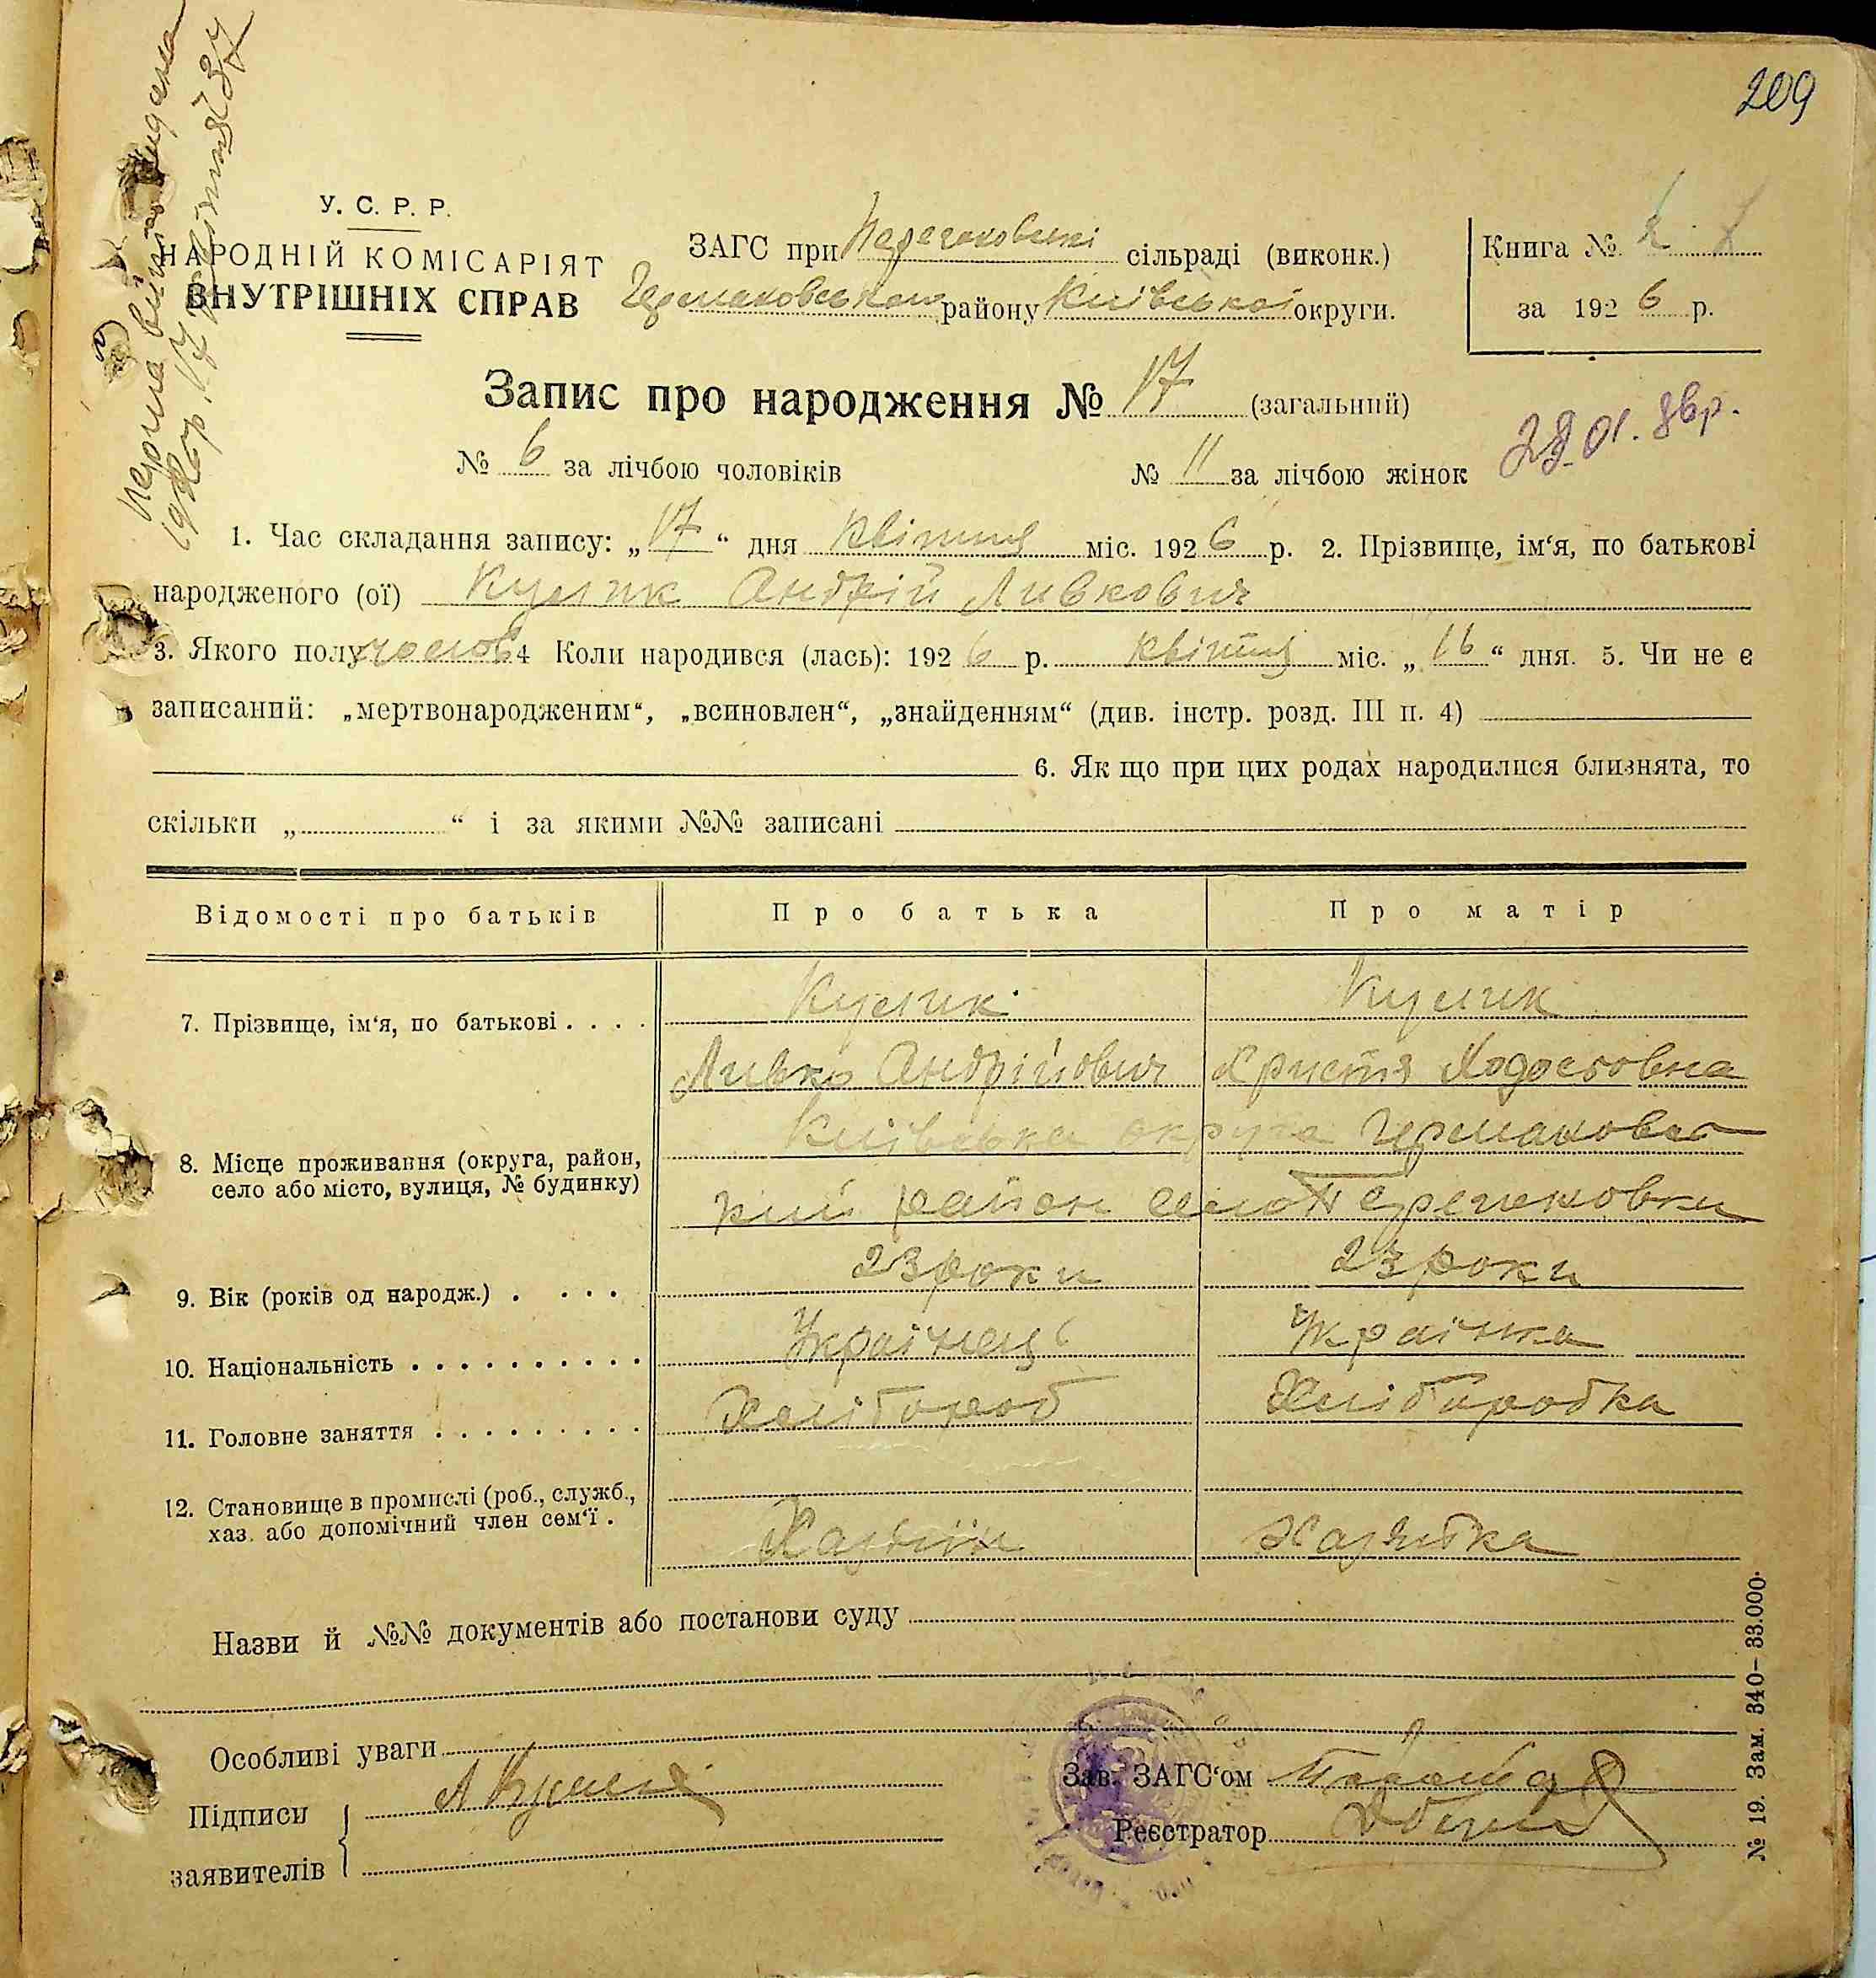 209
У. С. Р. Р.
НАРОДНІЙ КОМІСАРІЯТ
ВНУТРІШНІХ СПРАВ
ЗАГС при сільраді (виконк.)
району Київської округи.
Книга №
за 1926 р.
Запис про народження № 17 (загальний)
№ 6 за лічбою чоловіків
№ 11 за лічбою жінок
1. Час складання запису: „17“ дня Квітня міс. 1926 р. 2. Прізвище, ім‘я, по батькові
народженого (ої) Кулик Андрій Ливкович
3. Якого полу чолов 4 Коли народився (лась): 1926 р. квітня міс. „16“ дня. 5. Чи не є
записаний: „мертвонародженим“, „всиновлен“, „знайденням“ (див. інстр. розд. III п. 4)
6. Як що при цих родах народилися близнята, то
скільки „ “ і за якими №№ записані
Відомості про батьків
Про батька
Про матір
7. Прізвище, ім‘я, по батькові . . . .
Кулик
Ливко Андрійович
Кулик
Христя Ходосовна
8. Місце проживання (округа, район,
село або місто, вулиця, № будинку)
Київська округа Гермаковсь
кий район село
9. Вік (років од народж.) . . . .
23 роки
23 роки
10. Національність . . . . . . . . . .
Українець
Українка
11. Головне заняття . . . . . . . . .
Хлібороб
Хліборобка
12. Становище в промислі (роб., служб.,
хаз. або допомічний член сем‘ї .
Хазяїн
Хазяйка
Назви й №№ документів або постанови суду
Особливі уваги
Підписи
заявителів
А Кулик
Зав. ЗАГС‘ом
Реєстратор
№ 19. Зам. 340–33.000.